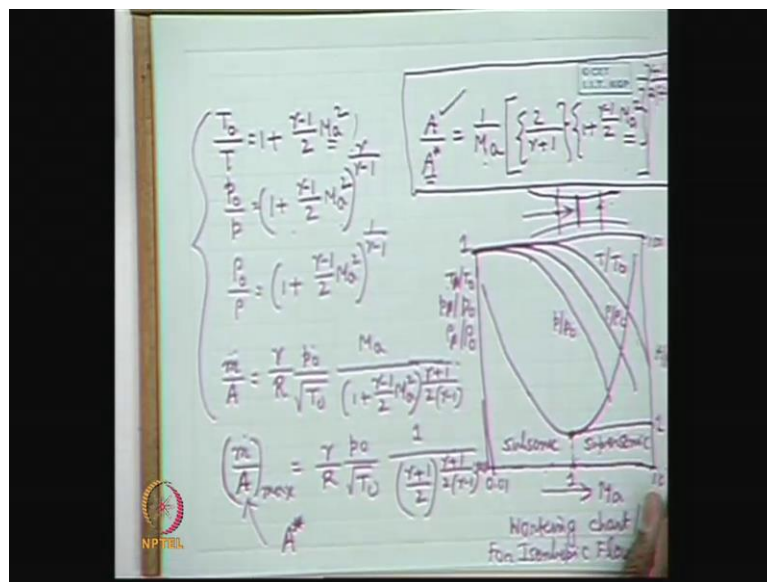 T₀/T = 1 + (γ-1)/2 Ma²
p₀/p = (1 + (γ-1)/2 Ma²)^(γ/(γ-1))
ρ₀/ρ = (1 + (γ-1)/2 Ma²)^(1/(γ-1))
ṁ/A = γ/R p₀/√T₀ Ma/(1 + (γ-1)/2 Ma²)^((γ+1)/(2(γ-1)))
(ṁ/A)max = γ/R p₀/√T₀ 1/((γ+1)/2)^((γ+1)/(2(γ-1)))
A*
I.I.T. KGP
A/A* = 1/Ma [{2/(γ+1)}{1 + (γ-1)/2 Ma²}]
1
T/T₀
p/p₀
ρ/ρ₀
T/T₀
p/p₀
ρ/ρ₀
1
Subsonic
Supersonic
0.01
1
Ma
10
Working chart
For Isentropic Flow
NPTEL